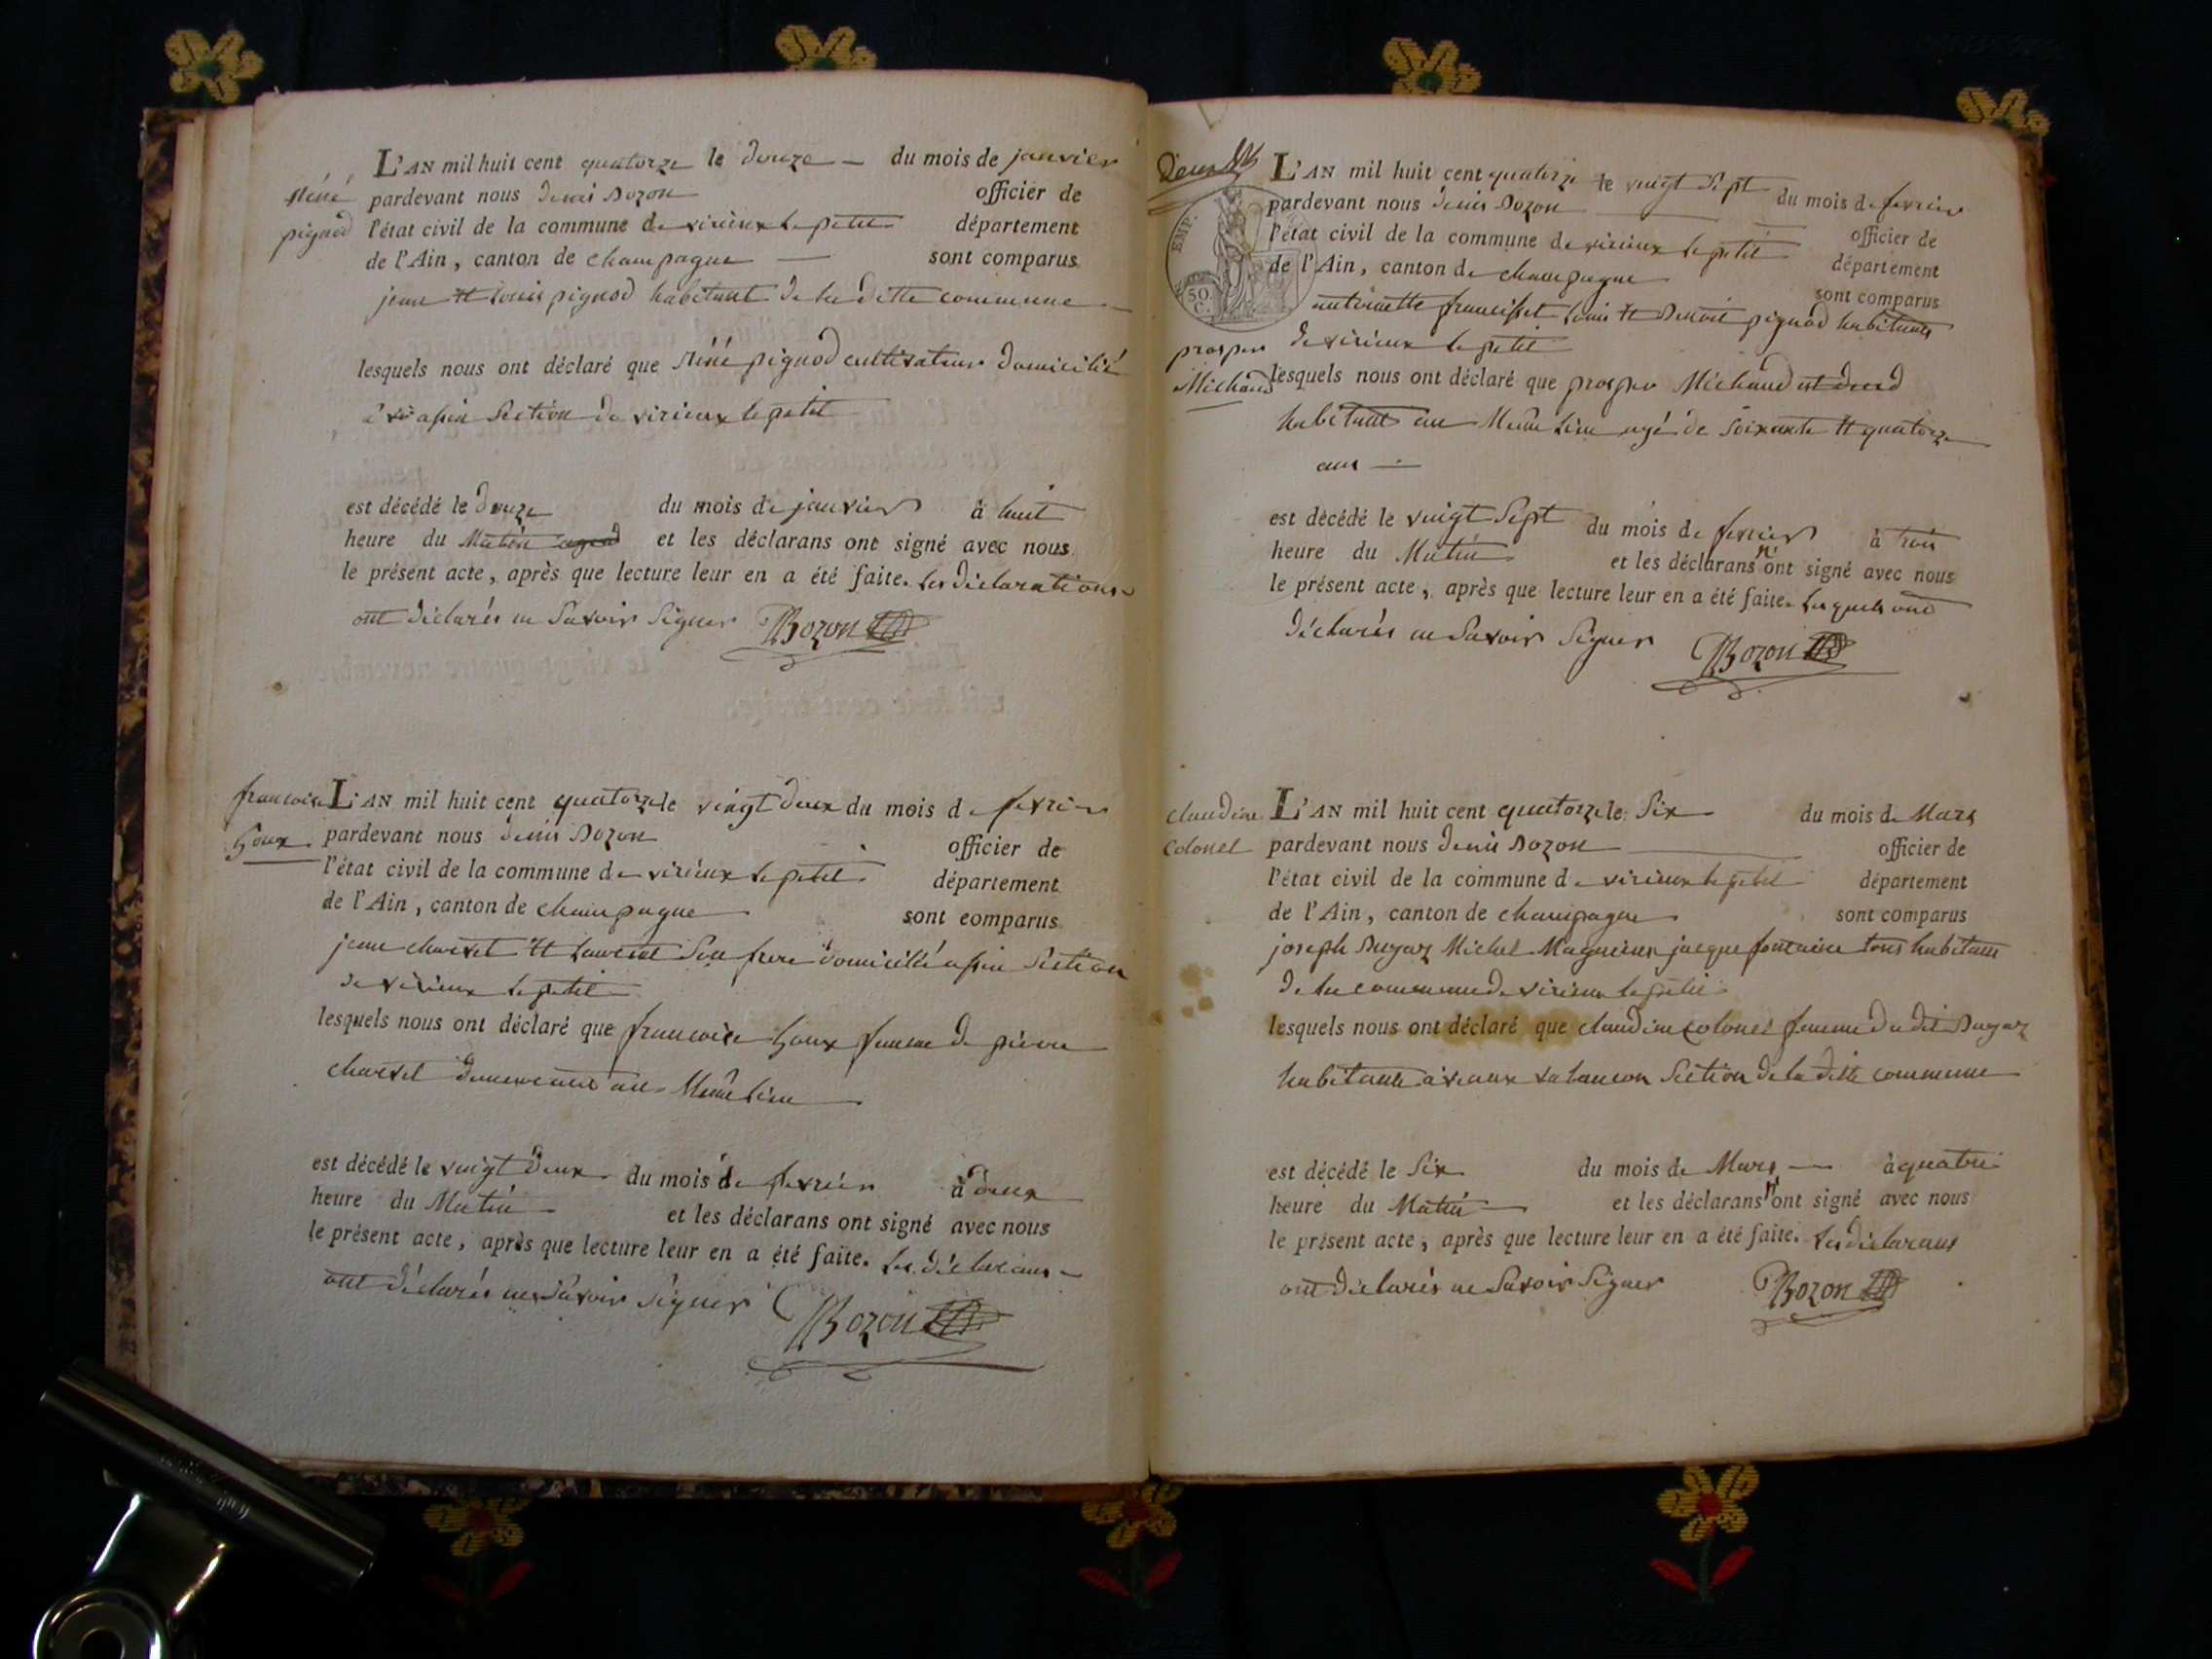 L'AN mil huit cent quatorze le douze du mois de janvier
Réné pardevant nous denis Bozon officier de
pignod l'état civil de la commune de virieux le petit département
de l'Ain, canton de champagne sont comparus
jean et Louis pignod habitant de la ditte commune
lesquels nous ont déclaré que Réné pignod cultivateur domicilié
à assin Section de virieux le petit
est décédé le douze du mois de janvier à huit
heure du Matin et les déclarans ont signé avec nous
le présent acte, après que lecture leur en a été faite. Les déclarations
ont déclarés ne Savoir Signer Bozon
francoise L'AN mil huit cent quatorze le vingt deux du mois de fevrier
pardevant nous denis Bozon officier de
l'état civil de la commune de virieux le petit département
de l'Ain, canton de champagne sont comparus
jean charvet et Laurent Son frere domicilié assin Section
de virieux le petit
lesquels nous ont déclaré que francoise femme de pierre
charvet demeurant au Même Lieu
est décédé le vingt deux du mois de fevrier à deux
heure du Matin et les déclarans ont signé avec nous
le présent acte, après que lecture leur en a été faite. Les déclarans
ont déclarés ne Savoir Signer Bozon
Deux
L'AN mil huit cent quatorze le vingt Sept du mois de fevrier
pardevant nous denis Bozon officier de
EMP.
l'état civil de la commune de virieux le petit département
de l'Ain, canton de champagne sont comparus
50
C.
antoinette francisset Louis et Benoit pignod habitants
de virieux le petit
prosper
Michaud lesquels nous ont déclaré que prosper Michaud
habitant au Même Lieu agé de Soixante et quatorze
ans
est décédé le vingt Sept du mois de fevrier à trois
heure du Matin et les déclarans n'ont signé avec nous
le présent acte, après que lecture leur en a été faite. Lesquels ont
déclarés ne Savoir Signer Bozon
claudine L'AN mil huit cent quatorze le Six du mois de Mars
Colonel pardevant nous denis Bozon officier de
l'état civil de la commune de virieux le petit département
de l'Ain, canton de champagne sont comparus
joseph Bugaz Michel jacque fontaine tous habitans
de la commune de virieux le petit
lesquels nous ont déclaré que claudine colonel femme du dit Bugaz
habitante à Section de la ditte commune
est décédé le Six du mois de Mars à quatre
heure du Matin et les déclarans n'ont signé avec nous
le présent acte, après que lecture leur en a été faite. Les déclarans
ont déclarés ne Savoir Signer Bozon